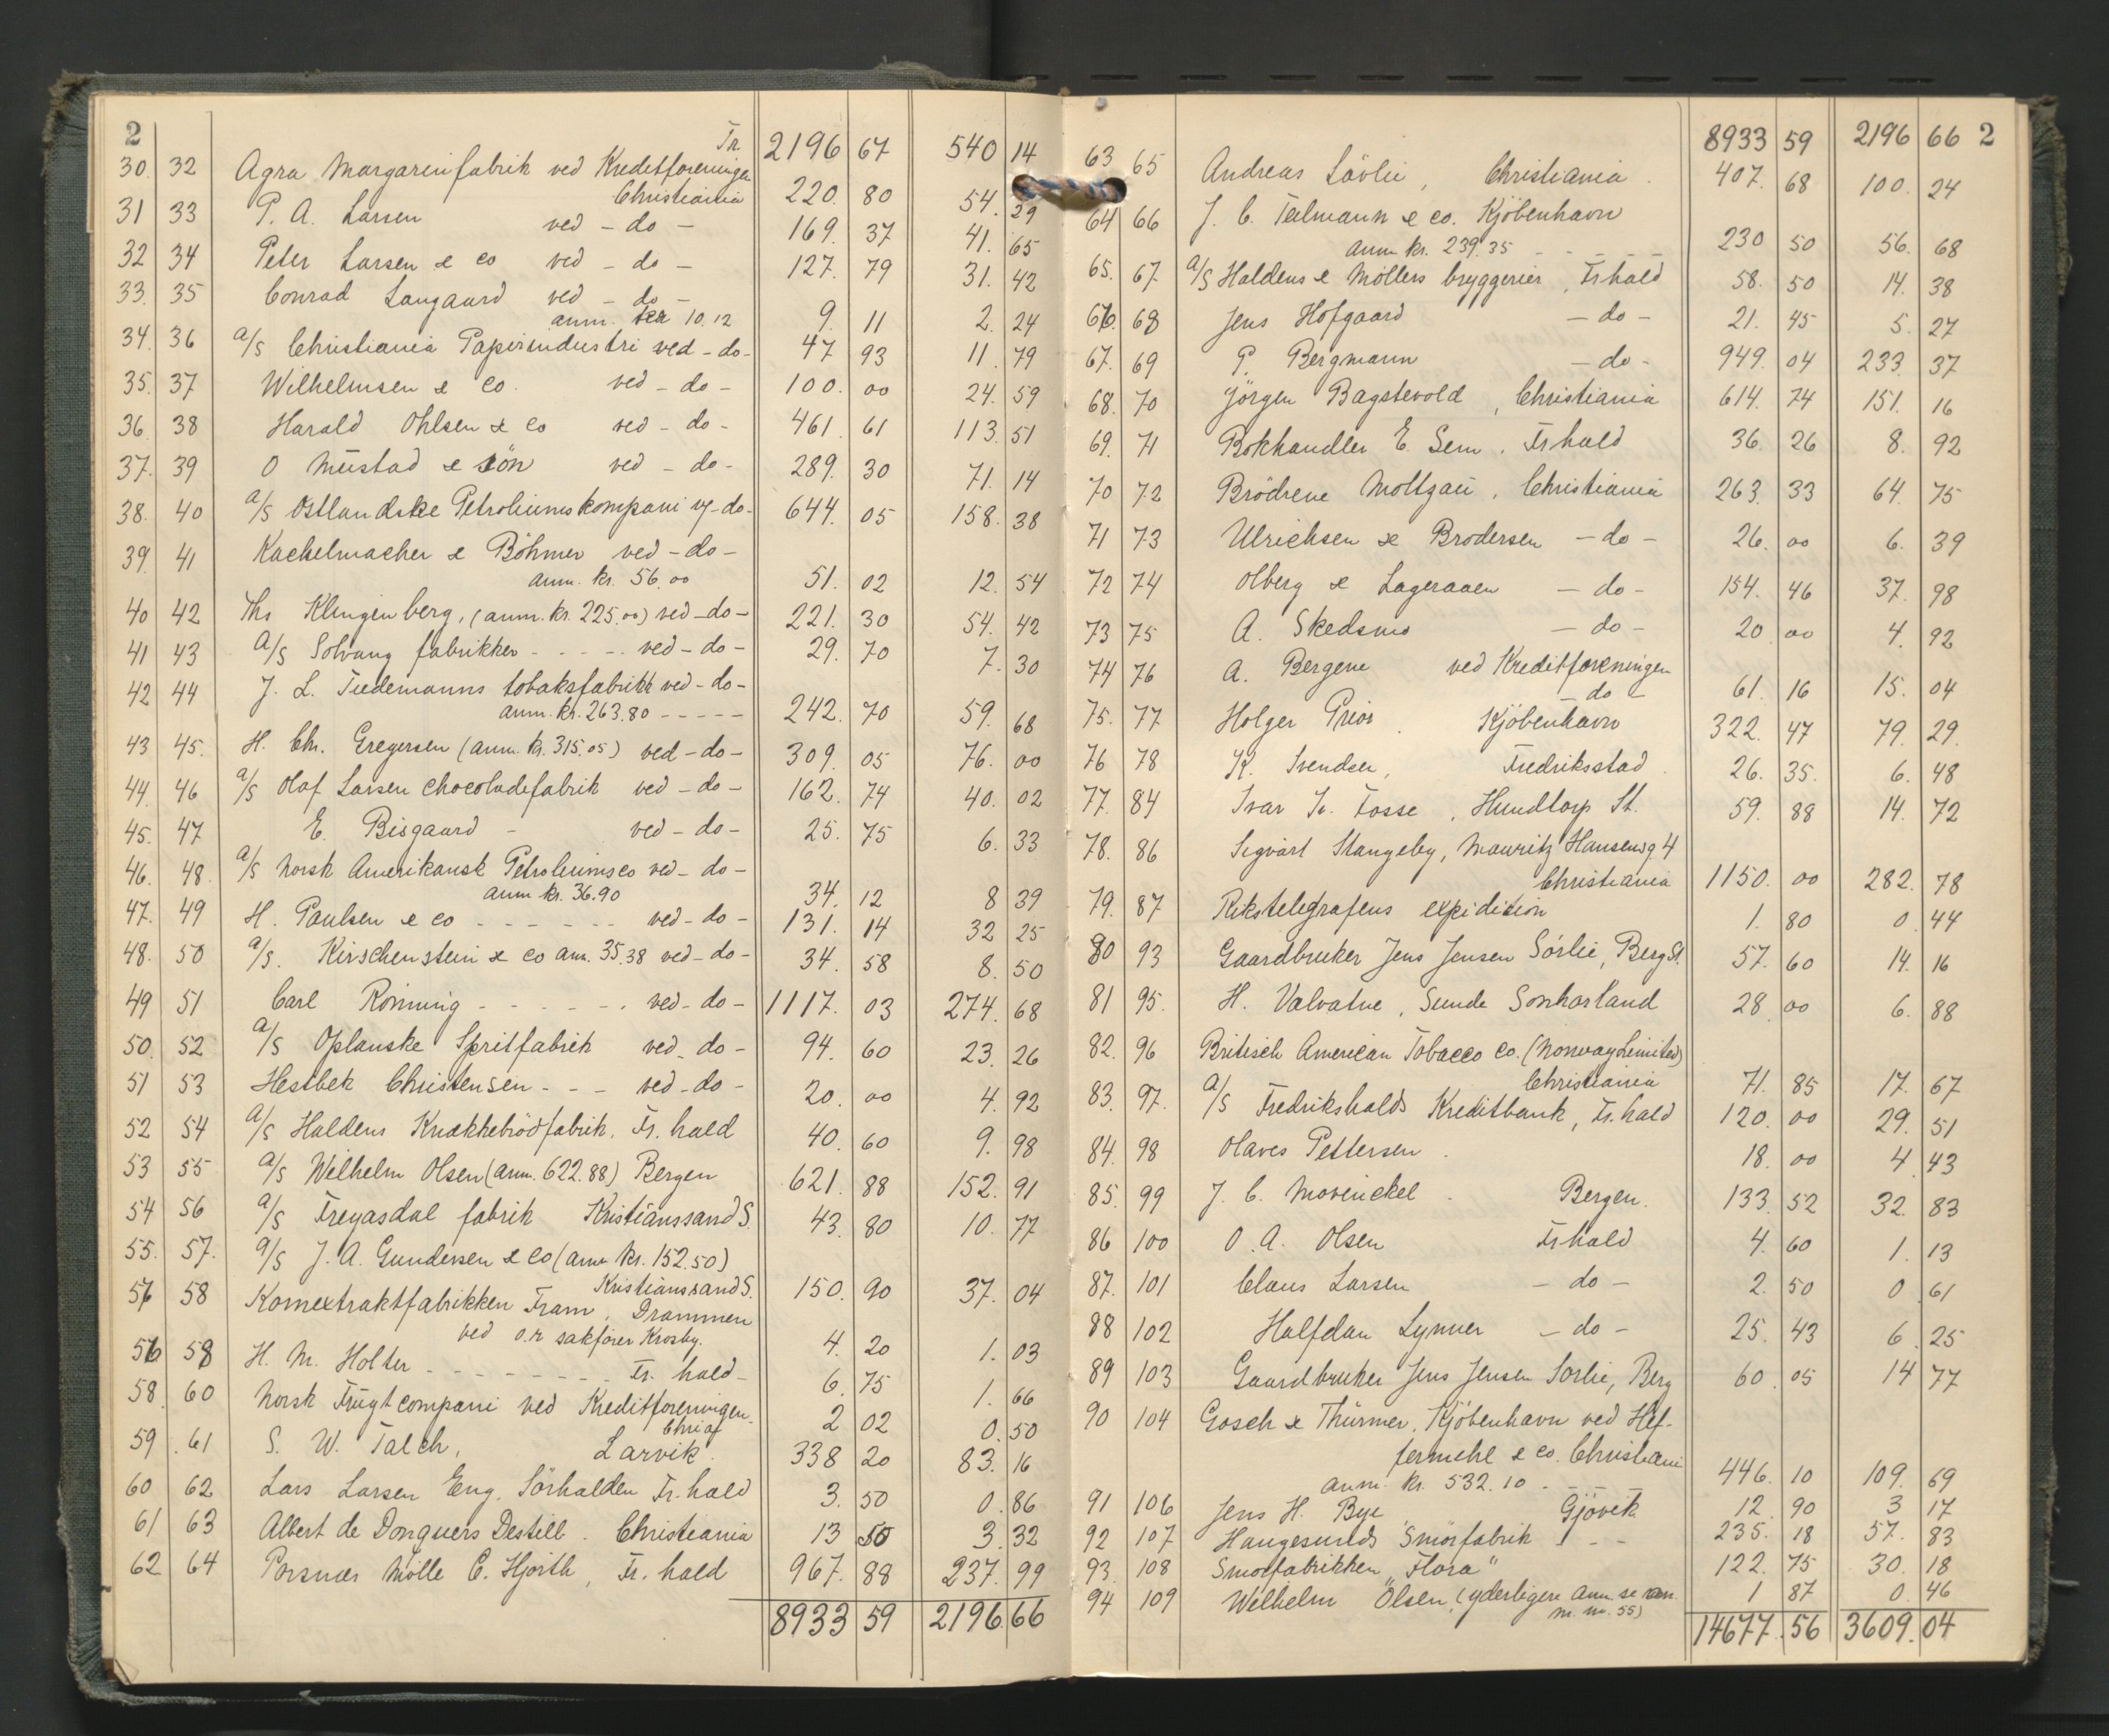 2
Tr. 2196 67 540 14
30. 32 Agra Margarinfabrik ved Kreditforeningen
Christiania 220. 80 54. 29
31 33 P. A. Larsen ved - do - 169. 37 41. 65
32 34 Peter Larsen & co ved - do - 127. 79 31. 42
33. 35 Conrad Langaard ved - do -
anm. 10.12 9. 11 2. 24
34. 36 a/s Christiania Papirindustri ved - do - 47 93 11. 79
35. 37 Wilhelmsen & Co. ved - do - 100. 00 24. 59
36. 38 Harald Ohlsen & Co ved - do - 461. 61 113. 51
37. 39 O Mustad & sön ved - do - 289. 30 71. 14
38. 40 a/s Østlandske Petroliumskompani v/ - do - 644. 05 158. 38
39. 41 Kachelmacher & Böhmer ved - do -
anm. kr. 56.00 51. 02 12. 54
40 42 Ths Klingenberg, (anm. kr. 225.00) ved - do - 221. 30 54. 42
41 43 a/s Solvang fabrikker - - - - - ved - do - 29. 70 7. 30
42 44 J. L. Tiedemanns tobaksfabrikk ved - do -
anm. kr. 263.80 - - - - - 242. 70 59. 68
43 45. H. Chr. Gregersen (anm. kr. 315.05) ved - do - 309. 05 76. 00
44. 46 a/s Olaf Larsen Chocoladefabrik ved - do - 162. 74 40. 02
45. 47 E. Bisgaard - ved - do - 25. 75 6. 33
46. 48. a/s Norsk Amerikansk Petroliumsco ved - do -
anm kr. 36.90 34. 12 8 39
47. 49 H. Paulsen & co - - - - - - ved - do - 131. 14 32 25
48. 50 a/s. Kirschenstein & co anm. 35.38 ved - do - 34. 58 8. 50
49 51 Carl Rönning - - - - - - ved - do - 1117. 03 274. 68
50. 52 a/s Oplanske Spritfabrik ved - do - 94. 60 23. 26
51 53 Hestbek Christensen - - - ved - do - 20. 00 4. 92
52 54 a/s Haldens Knækkebrödfabrik, Fr. hald 40. 60 9. 98
53 55 a/s Wilhelm Olsen (anm. 622.88) Bergen 621. 88 152. 91
54 56 a/s Freyasdal fabrik Kristianssand S. 43. 80 10. 77
55. 57. a/s J. A. Gundersen & Co (anm kr. 152.50)
Kristianssand S. 150. 90 37. 04
57 58 Kornextraktfabrikken Fram, Drammen
ved o.r sakfører Krosby. 4. 20 1. 03
56 58 H. M. Holter - - - - - - - - Fr. hald - 6. 75 1. 66
58. 60 Norsk Frugtcompani ved Kreditforeningen.
Chria 2 02 0. 50
59 61 S. W. Falch, Larvik. 338 20 83. 16
60 62 Lars Larsen Eng, Sörhalden Fr. hald 3. 50 0. 86
61 63 Albert de Donquers Destill. Christiania 13 50 3. 32
62 64 Porsnæs Mölle C. Hjorth, Fr. hald 967. 88 237. 99
8933 59 2196. 66
8933 59 2196 66 2
63 65 Andreas Lövlie, Christiania. 407. 68 100. 24
64 66 J. C. Teilmann & co. Kjöbenhavn
anm kr. 239.35 - - - - - 230 50 56. 68
65. 67. a/s Haldens & Möllers bryggerier, Frhald 58. 50 14. 38
66. 68 Jens Hofgaard - do - 21. 45 5. 27
67. 69 P. Bergmann - do - 949. 04 233. 37
68. 70 Jörgen Bagstevold, Christiania 614. 74 151. 16
69. 71 Bokhandler E. Sem, Frhald 36. 26 8. 92
70 72 Brödrene Moltzau, Christiania 263. 33 64. 75
71 73 Ulrichsen & Brodersen - do - 26. 00 6. 39
72 74 Olberg & Lageraaen - do - 154. 46 37. 98
73 75 A. Skedsmo - do - 20 00 4. 92
74 76 A. Bergene ved Kreditforeningen
- do - 61. 16 15. 04
75. 77 Holger Prior. Kjöbenhavn 322. 47 79. 29.
76 78 K. Svendsen, Fredriksstad. 26. 35. 6. 48
77. 84 Ivar Kr. Fosse, Hundtorp St. 59. 88 14. 72
78. 86 Sigvart Stangeby, Mauritz Hansensg 4
Christiania 1150. 00 282. 78
79. 87 Rikstelegrafens expidition 1. 80 0. 44
80 93 Gaardbruker Jens Jensen Sörlie, Berg St. 57. 60 14. 16
81 95. H. Valvatne, Sunde Sönhorland 28. 00 6. 88
82. 96 Britisch American Tobacco Co. (Norway Limited)
Christiania 71. 85 17. 67
83. 97. a/s Fredrikshalds Kreditbank, Fr. hald 120. 00 29. 51
84. 98 Olaves Pettersen. 18. 00 4. 43
85. 99 J. C. Mowinckel. Bergen. 133. 52 32. 83
86 100 O. A. Olsen Frhald 4. 60 1. 13
87. 101 Claus Larsen - do - 2. 50 0. 61
88 102 Halfdan Lynner - do - 25. 43 6. 25
89 103 Gaardbruker Jens Jensen Sorlie, Berg 60. 05 14 77
90 104 Gosch & Thürmer. Kjöbenhavn ved Hef-
fermehl & co. Christiani
anm. kr. 532.10 - - - - 446. 10 109. 69
91 106 Jens H. Bye Gjövik 12. 90 3 17
92 107 Haugesunds Smörfabrik - - 235. 18 57. 83
93. 108 Smörfabrikken „Flora" 122. 75 30. 18
94 109 Wilhelm Olsen, (yderligere anm. se
m. no. 55) 1 87 0. 46
14677. 56 3609. 04